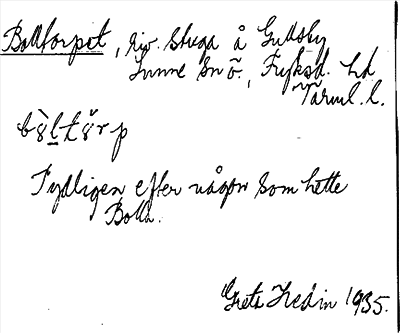 Bolltorpet, riv. stuga å Gullsby
Sunne sn ö., Fryksd. hd
Värml. l.
Tydligen efter någon som hette
Bolla.
Greta Hedin 1935.